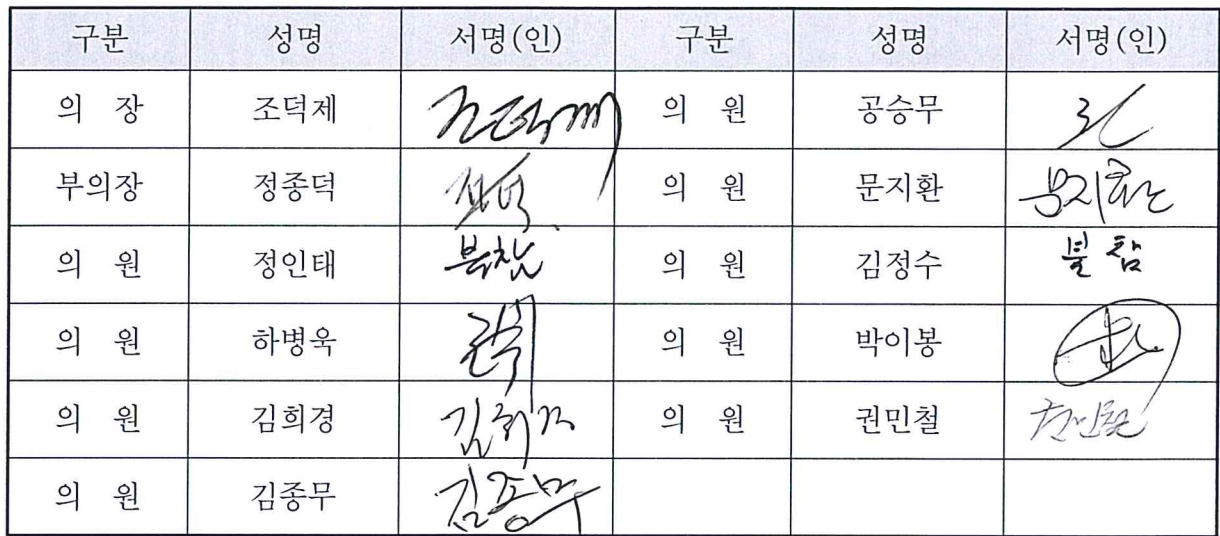 구분 성명 서명(인) 구분 성명 서명(인)
의 장 조덕제 조덕제 의 원 공승무
부의장 정종덕 의 원 문지환 문지환
의 원 정인태 불참 의 원 김정수 불참
의 원 하병욱 의 원 박이봉
의 원 김희경 김희경 의 원 권민철 권민철
의 원 김종무 김종무